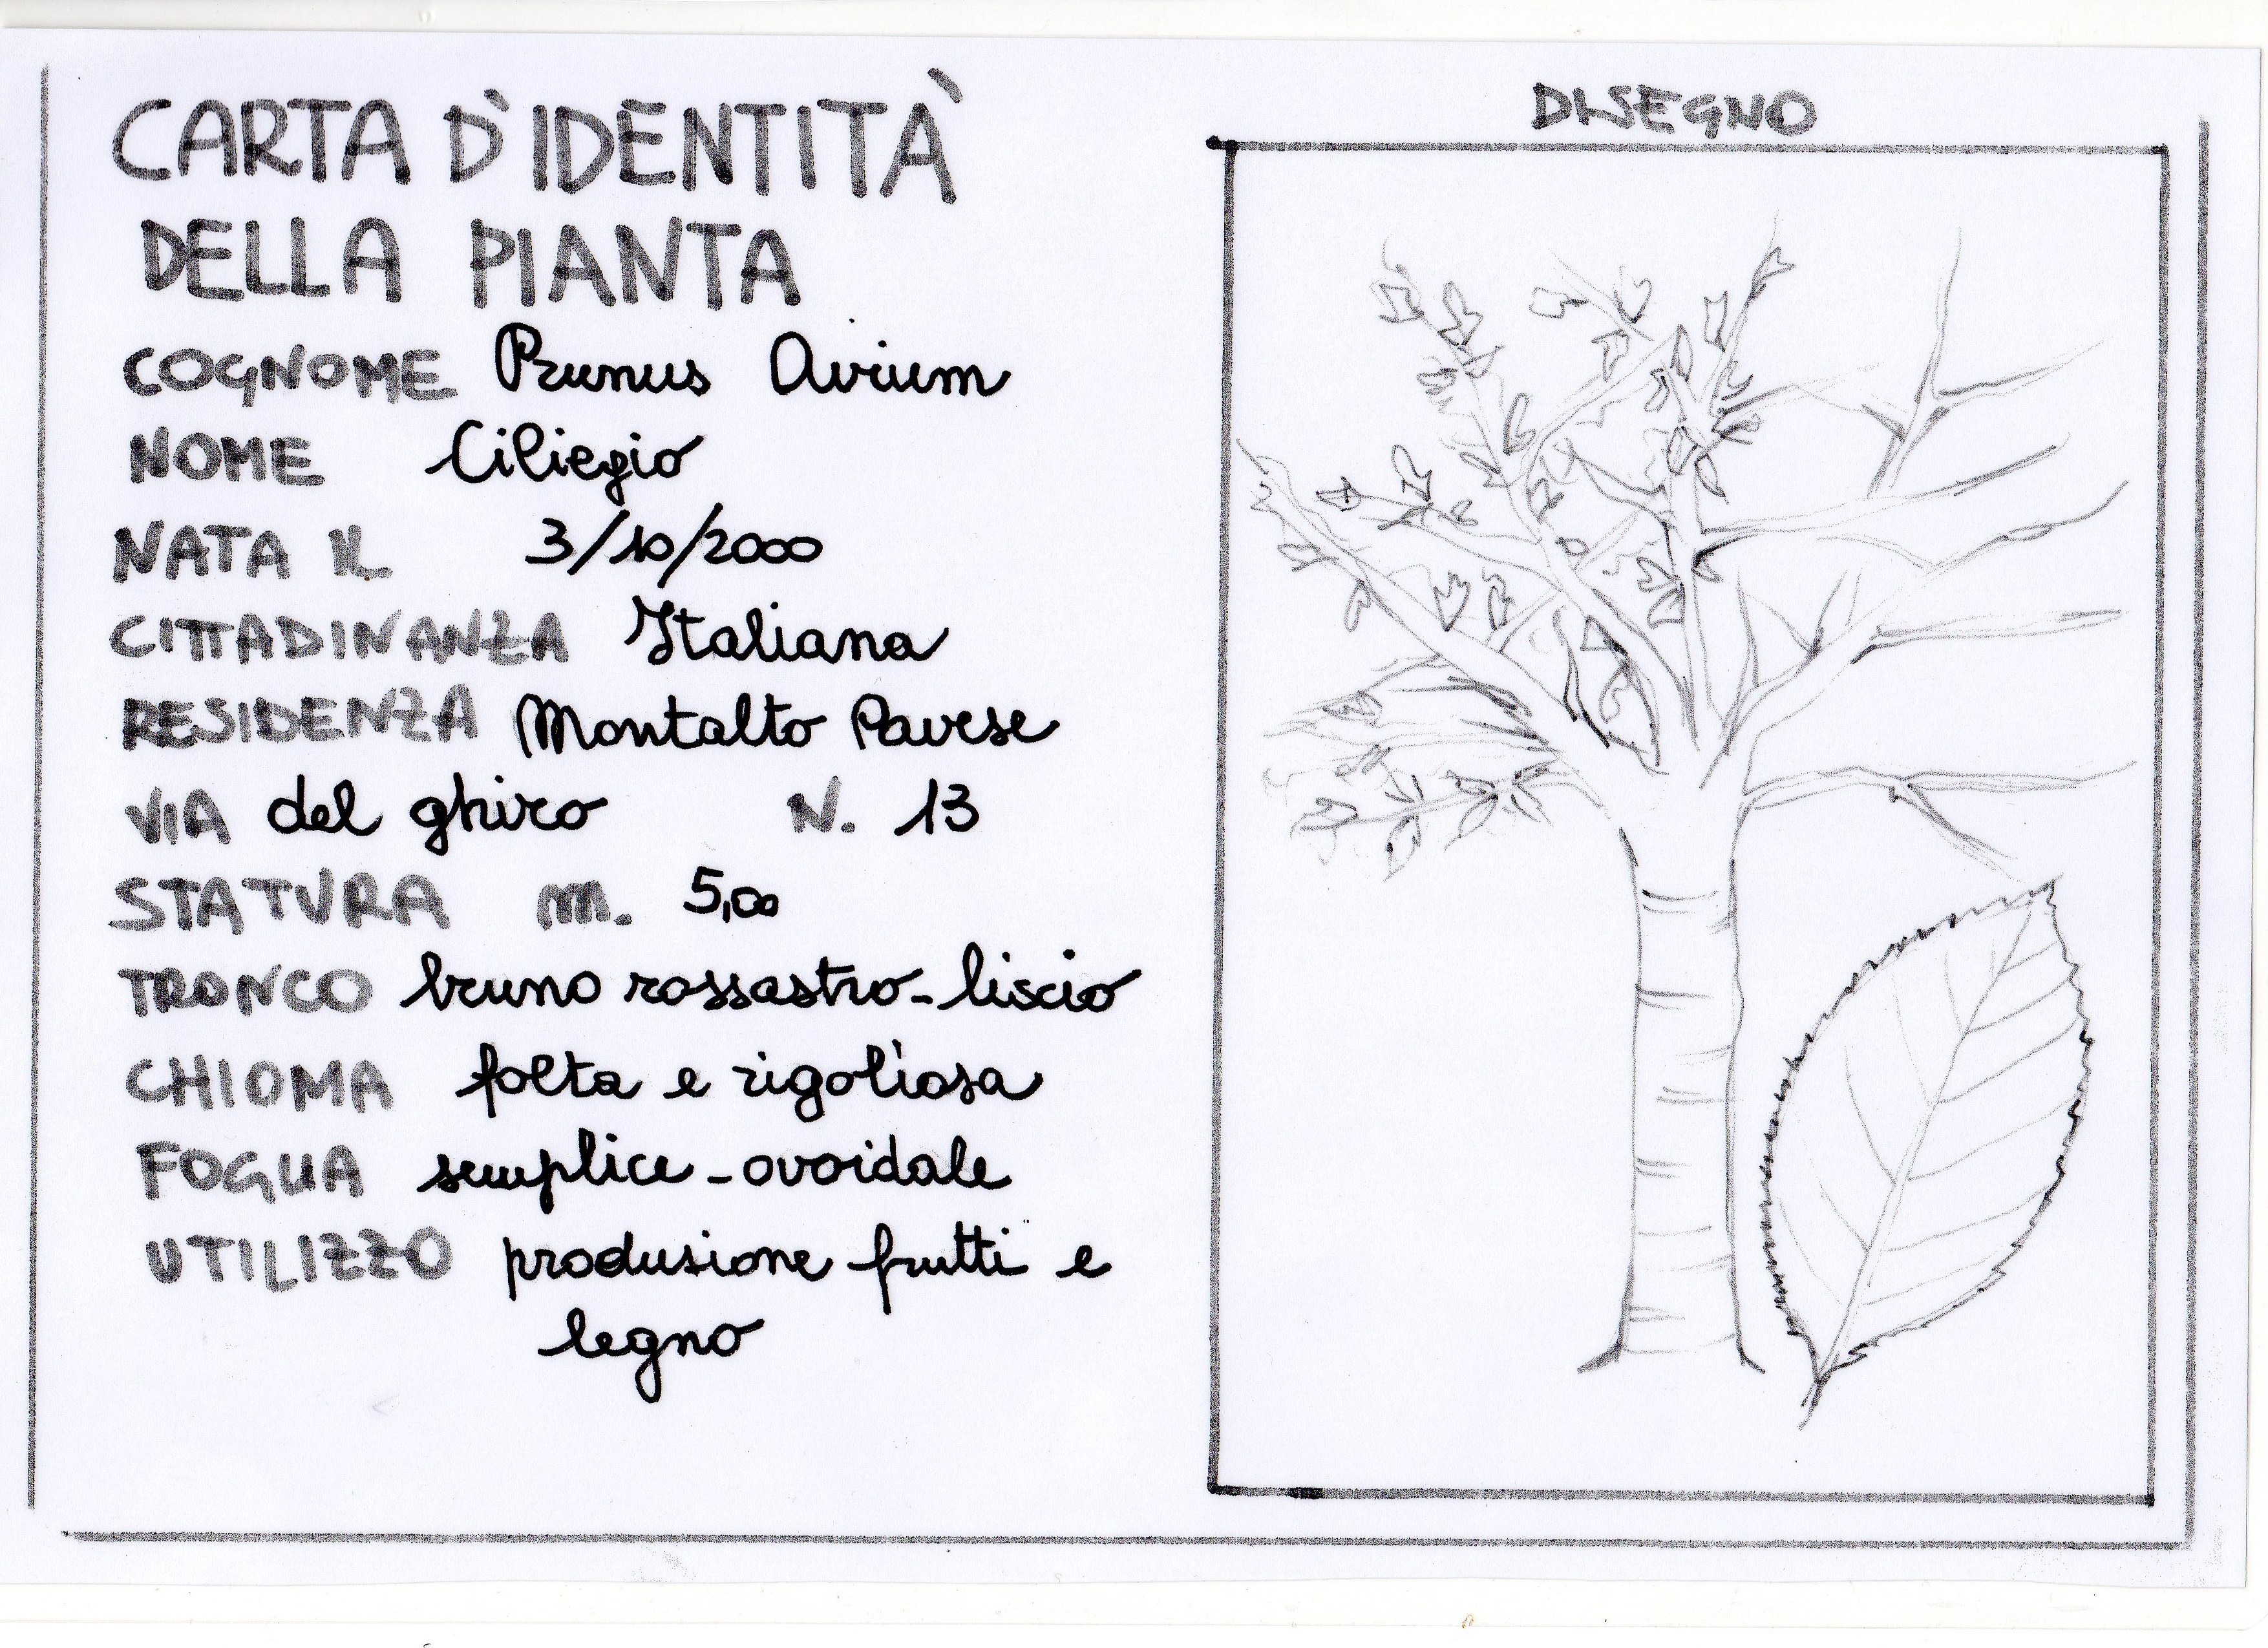 CARTA D'IDENTITÀ
DELLA PIANTA
COGNOME Prunus Avium
NOME Ciliegio
NATA IL 3/10/2000
CITTADINANZA Italiana
RESIDENZA Montalto Pavese
VIA del ghiro N. 13
STATURA m. 5,00
TRONCO bruno rossastro-liscio
CHIOMA folta e rigoliosa
FOGLIA semplice-ovoidale
UTILIZZO produsione frutti e
legno
DISEGNO